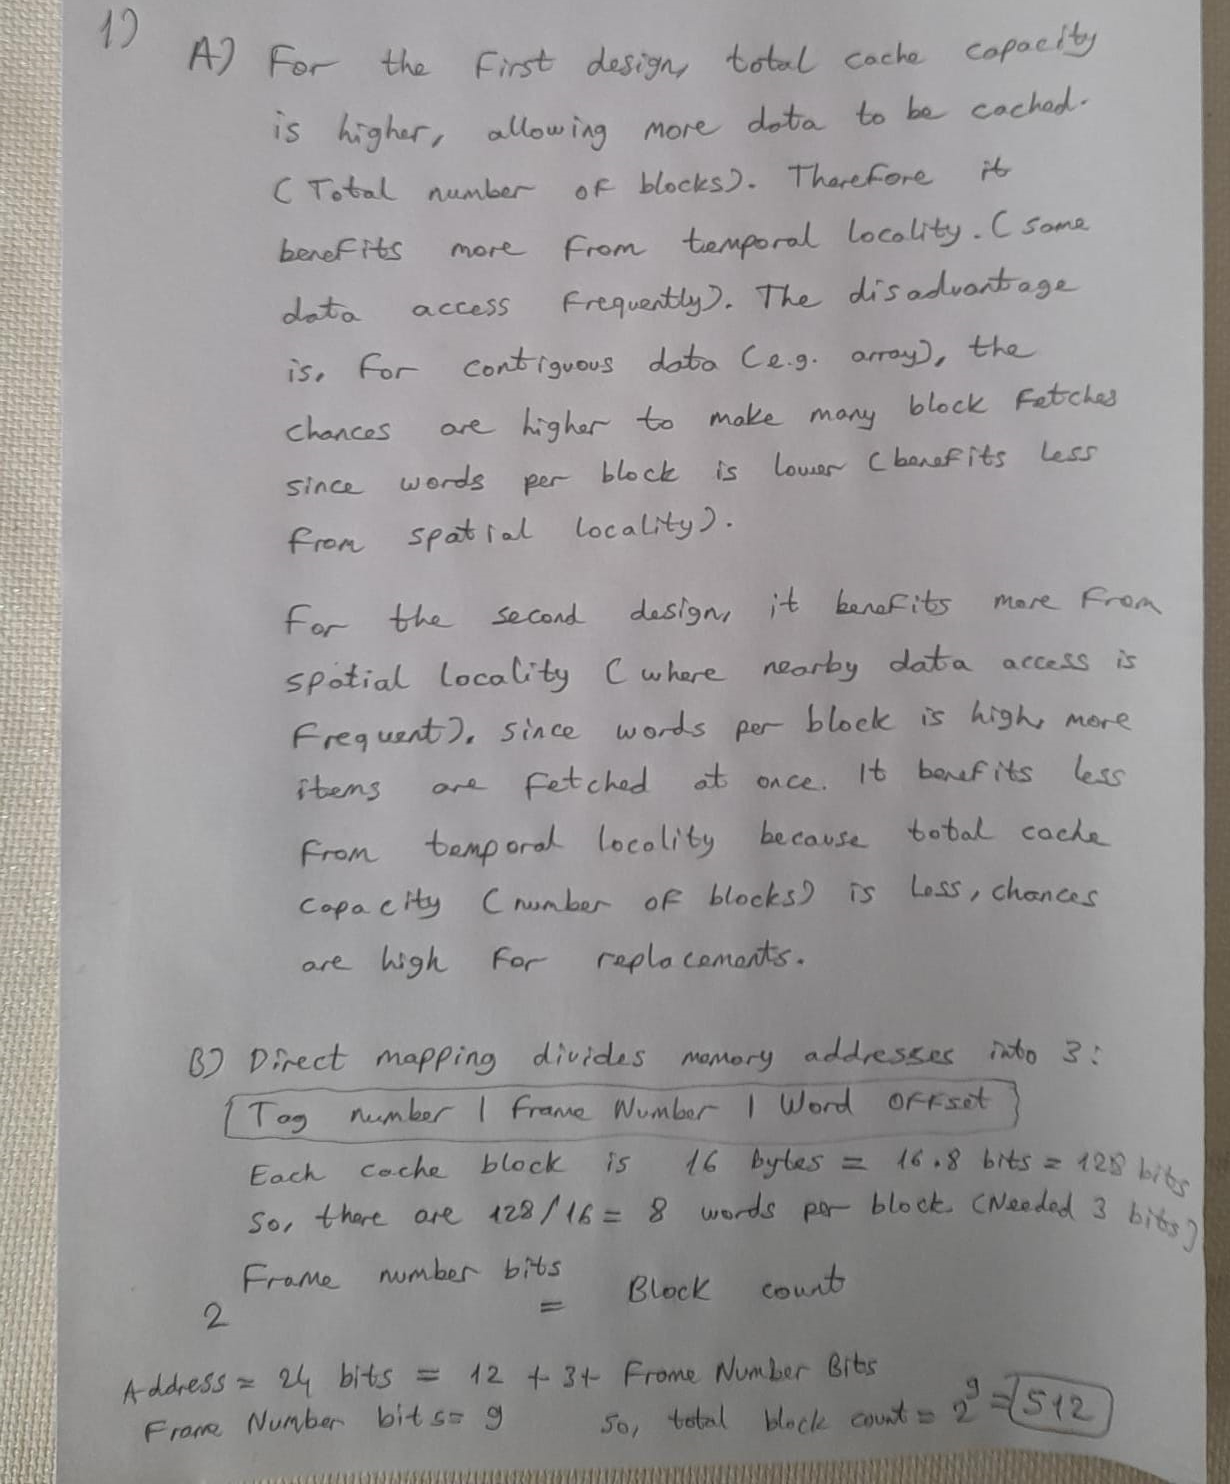 1)
A) For the first design, total cache capacity
is higher, allowing more data to be cached.
(Total number of blocks). Therefore it
benefits more from temporal locality. (same
data access frequently). The disadvantage
is, for contiguous data (e.g. array), the
chances are higher to make many block fetches
since words per block is lower (benefits less
from spatial locality).
For the second design, it benefits more from
spatial locality (where nearby data access is
frequent). Since words per block is high, more
items are fetched at once. It benefits less
from temporal locality because total cache
capacity (number of blocks) is less, chances
are high for replacements.
B) Direct mapping divides memory addresses into 3:
[Tag number | Frame Number | Word Offset]
Each cache block is 16 bytes = 16.8 bits = 128 bits
So, there are 128/16 = 8 words per block. (Needed 3 bits)
2^Frame number bits = Block count
Address = 24 bits = 12 + 3 + Frame Number Bits
Frame Number bits = 9 So, total block count = 2^9 = 512